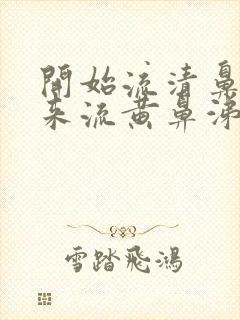 開始流清鼻
来流黄鼻涕
雪踏飛鴻